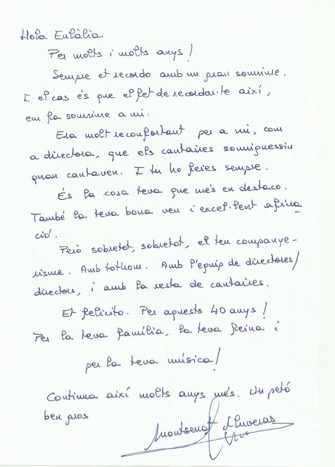 Hola Eulàlia
Per molts i molts anys!
Sempre et recordo amb un gran somriure.
I el cas és que el fet de recordar-te així,
em fa somriure a mi.
Era molt reconfortant per a mi, com
a directora, que els cantaires somriguessin
quan cantaven. I tu ho feies sempre.
És la cosa teva que més en destaco.
També la teva bona veu i excel·lent afina
ció.
Però sobretot, sobretot, el teu companye-
risme. Amb tothom. Amb l'equip de directores/
directors, i amb la resta de cantaires.
Et felicito. Per aquests 40 anys!
Per la teva família, la teva feina i
per la teva música!
Continua així molts anys més. Un petó
ben gros
Montserrat